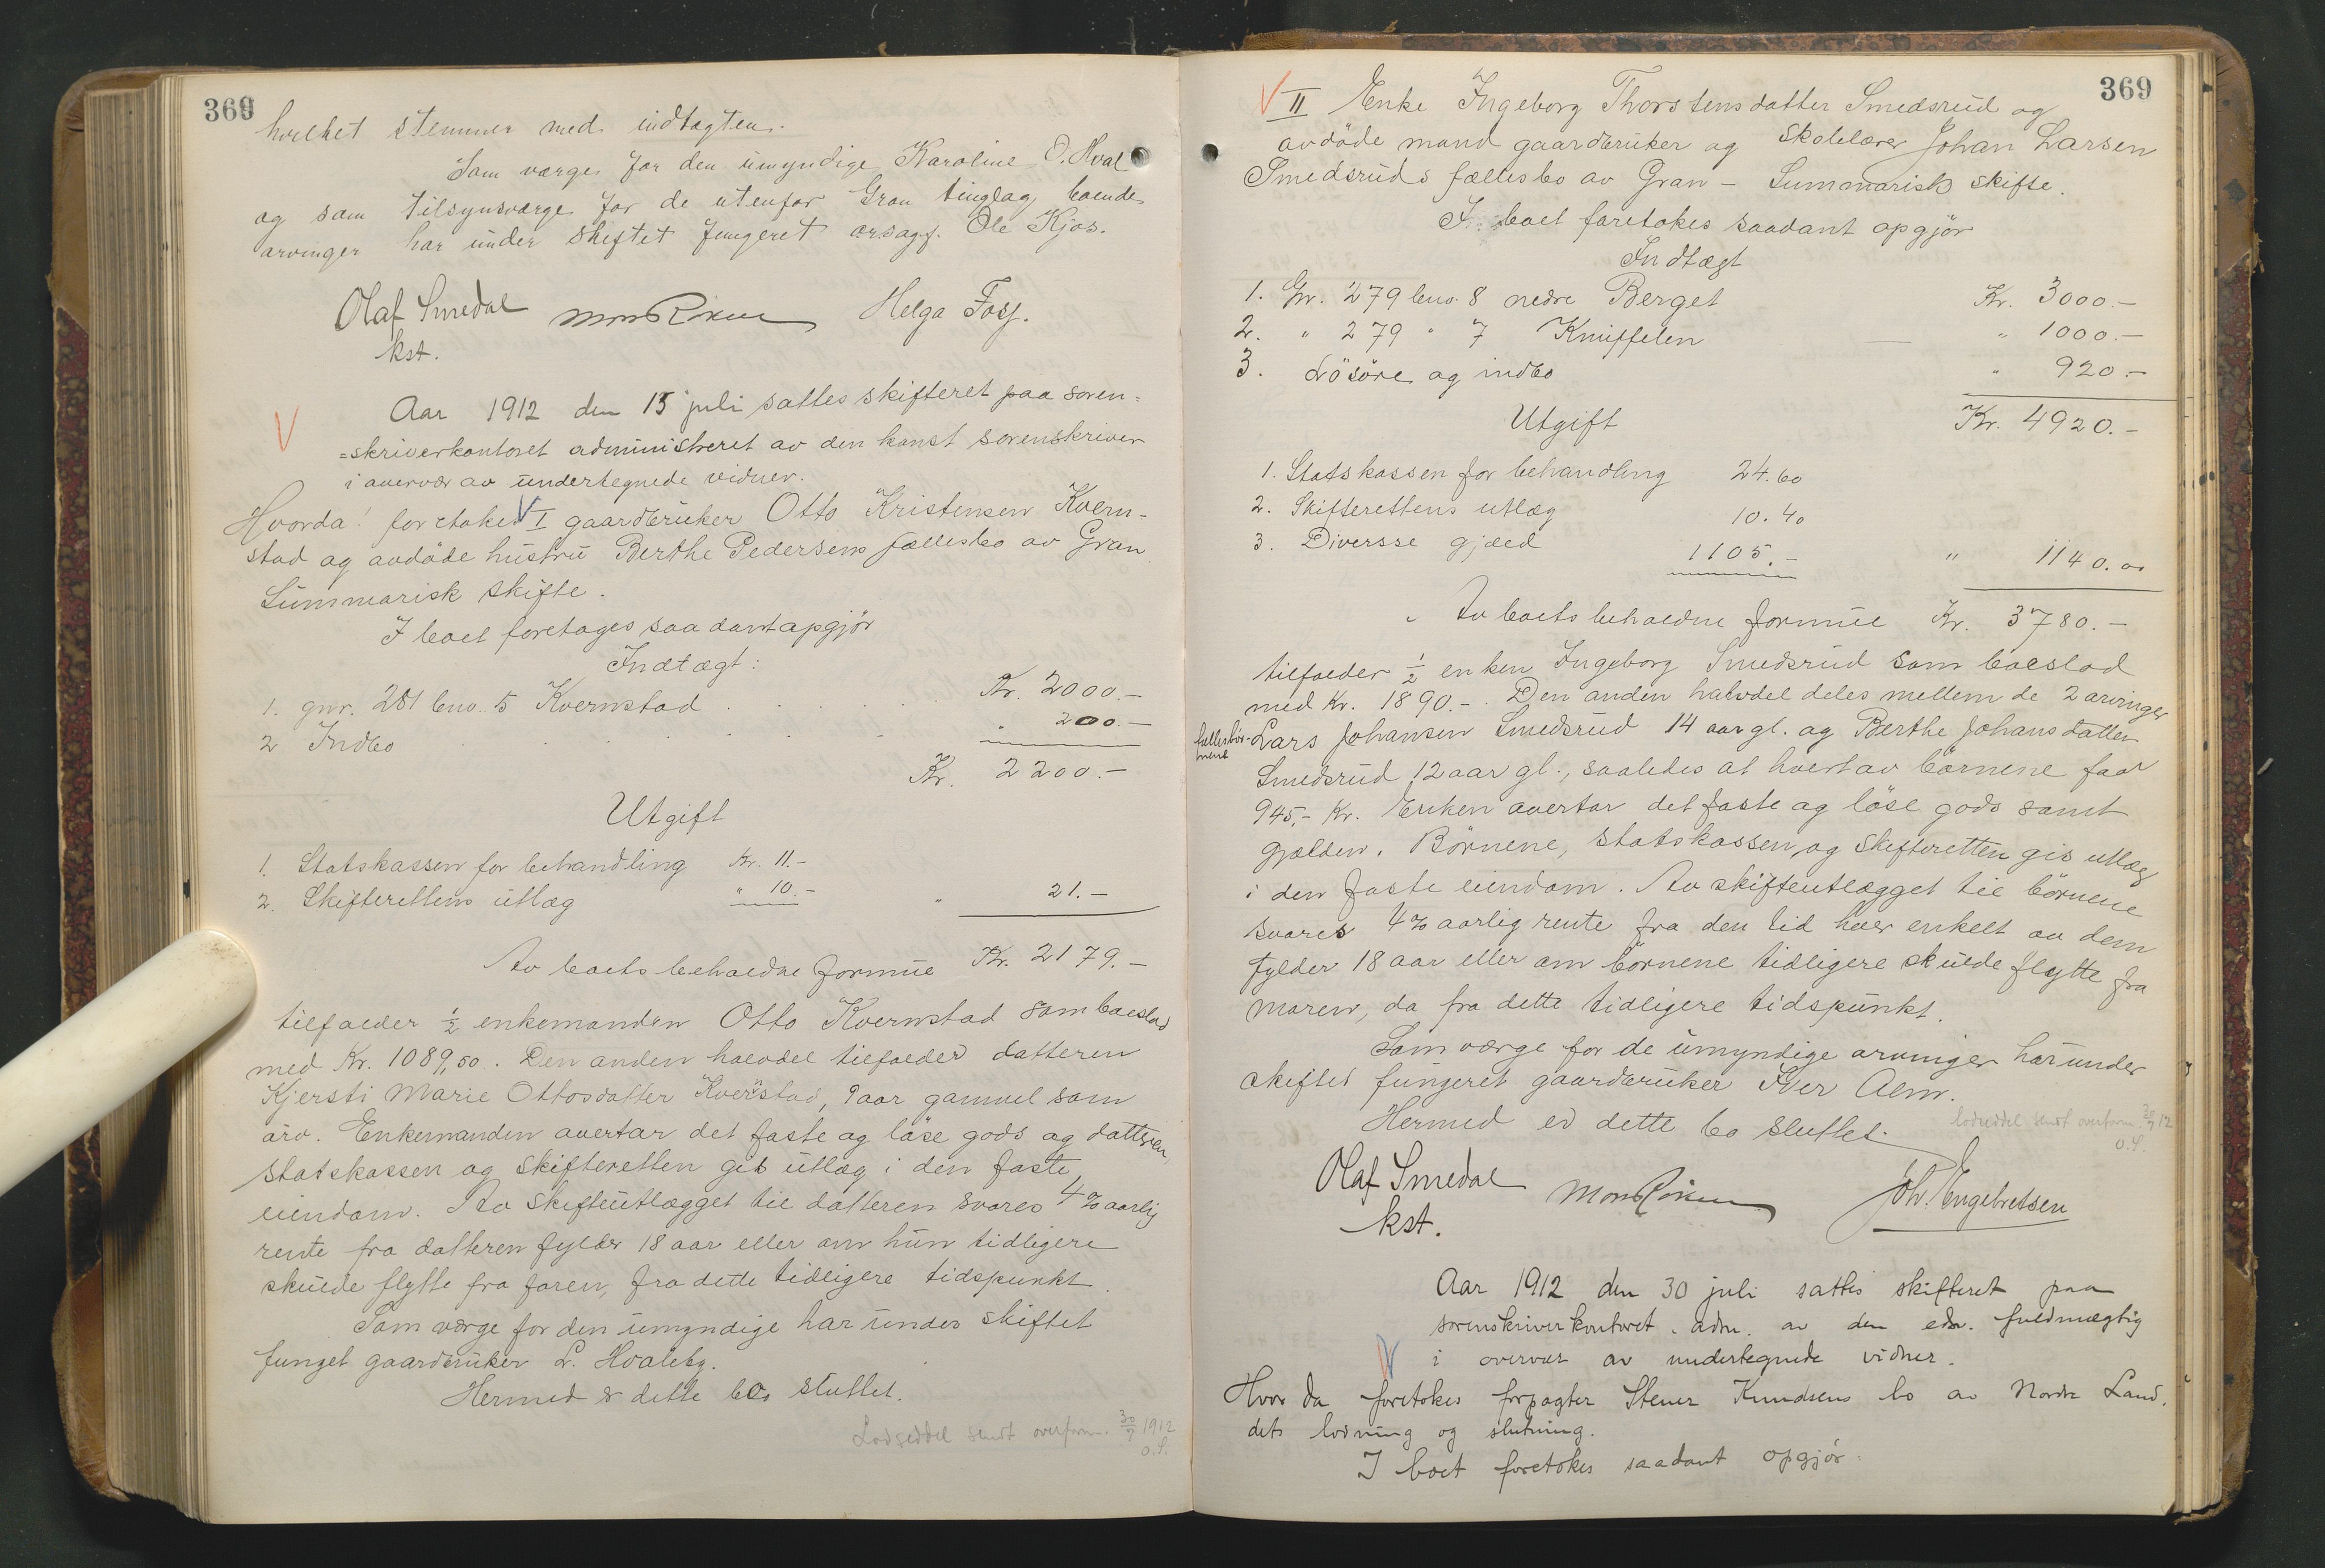 369
hvilket stemmer med indtægten.
Som værge for den umyndige Karoline O. Hval
og som tilsynsværge for de utenfor Gran tinglag boende
arvinger har under skiftet fungeret orsagf. Ole Kjos.
Olaf Smedal Helga Foss.
kst.
V Aar 1912 den 15 juli sattes skifteret paa soren=
=skriverkontoret administreret av den konst sorenskriver
i overvær av undertegnede vidner.
Hvorda! foretokes V I gaardbruker Otto Kristensen Kvern=
stad og avdöde hustru Berthe Pedersens fællesbo av Gran
Summarisk skifte.
I boet foretages saadant opgjör
Indtægt:
1. gnr. 281 bno. 5 Kvernstad . . . . . Kr. 2000.-
2 Indbo . . . . . " 200.-
Kr. 2200.-
Utgift
1. Statskassen for behandling Kr. 11.-
2. Skifterettens utlæg " 10.- " 21.-
Av boets beholdne formue Kr. 2179.-
tilfalder ½ enkemanden Otto Kvernstad som boeslod
med Kr. 1089,50. Den anden halvdel tilfalder datteren
Kjersti Marie Ottosdatter Kverstad, 9 aar gammel som
arv. Enkemanden overtar det faste og löse gods og datteren,
statskassen og skifteretten gis utlæg i den faste
eiendom. Av skifteutlægget til datteren svares 4 % aarlig
rente fra datteren fylder 18 aar eller om hun tidligere
skulde flytte fra faren, fra dette tidligere tidspunkt.
Som værge for den umyndige har under skiftet
funget gaardbruker L. Hvaleby.
Hermed er dette bo sluttet.
Lodseddel sendt overform. 30/7 1912
O.S.
369
V II Enke Ingeborg Thorstensdatter Smedsrud og
avdöde mand gaardbruker og skolelærer Johan Larsen
Smedsruds fællesbo av Gran - Summarisk skifte.
I boet foretokes saadant opgjör
Indtægt
1. Gr. 279 bno. 8 nedre Berget Kr. 3000.-
2. " 279 " 7 Kniffelen " 1000.-
3. Lösöre og indbo " 920.-
Utgift Kr. 4920.-
1. Statskassen for behandling 24.60
2. Skifterettens utlæg 10.40
3. Diversse gjæld 1105.- " 1140.00
Av boets beholdne formue Kr. 3780.-
tilfalder ½ enken Ingeborg Smedsrud som boeslod
med Kr. 1890.-. Den anden halvdel deles mellem de 2 arvinger
fællesbör-
nene
Lars Johansen Smedsrud 14 aar gl. og Berthe Johansdatter
Smedsrud 12 aar gl., saaledes at hvert av börnene faar
945,- Kr. Enken overtar det faste og löse gods samt
gjælden. Börnene, statskassen og skifteretten gis utlæg
i den faste eiendom. Av skifteutlægget til börnene
svares 4 % aarlig rente fra den tid hver enkelt av dem
fylder 18 aar eller om börnene tidligere skulde flytte fra
moren, da fra dette tidligere tidspunkt.
Som værge for de umyndige arvinger har under
skiftet fungeret gaardbruker Iver Alm.
Hermed er dette bo sluttet.
lodseddel sendt overform. 30/7 12
O.S.
Olaf Smedal Joh. Engebretsen
kst.
Aar 1912 den 30 juli sattes skifteret paa
sorenskriverkontoret, adm. av den edsv. fuldmægtig
V i overvær av undertegnede vidner.
Hvor da foretokes forpagter Stener Knudsens bo av Nordre Land,
dets lodning og slutning.
I boet foretokes saadant opgjör: